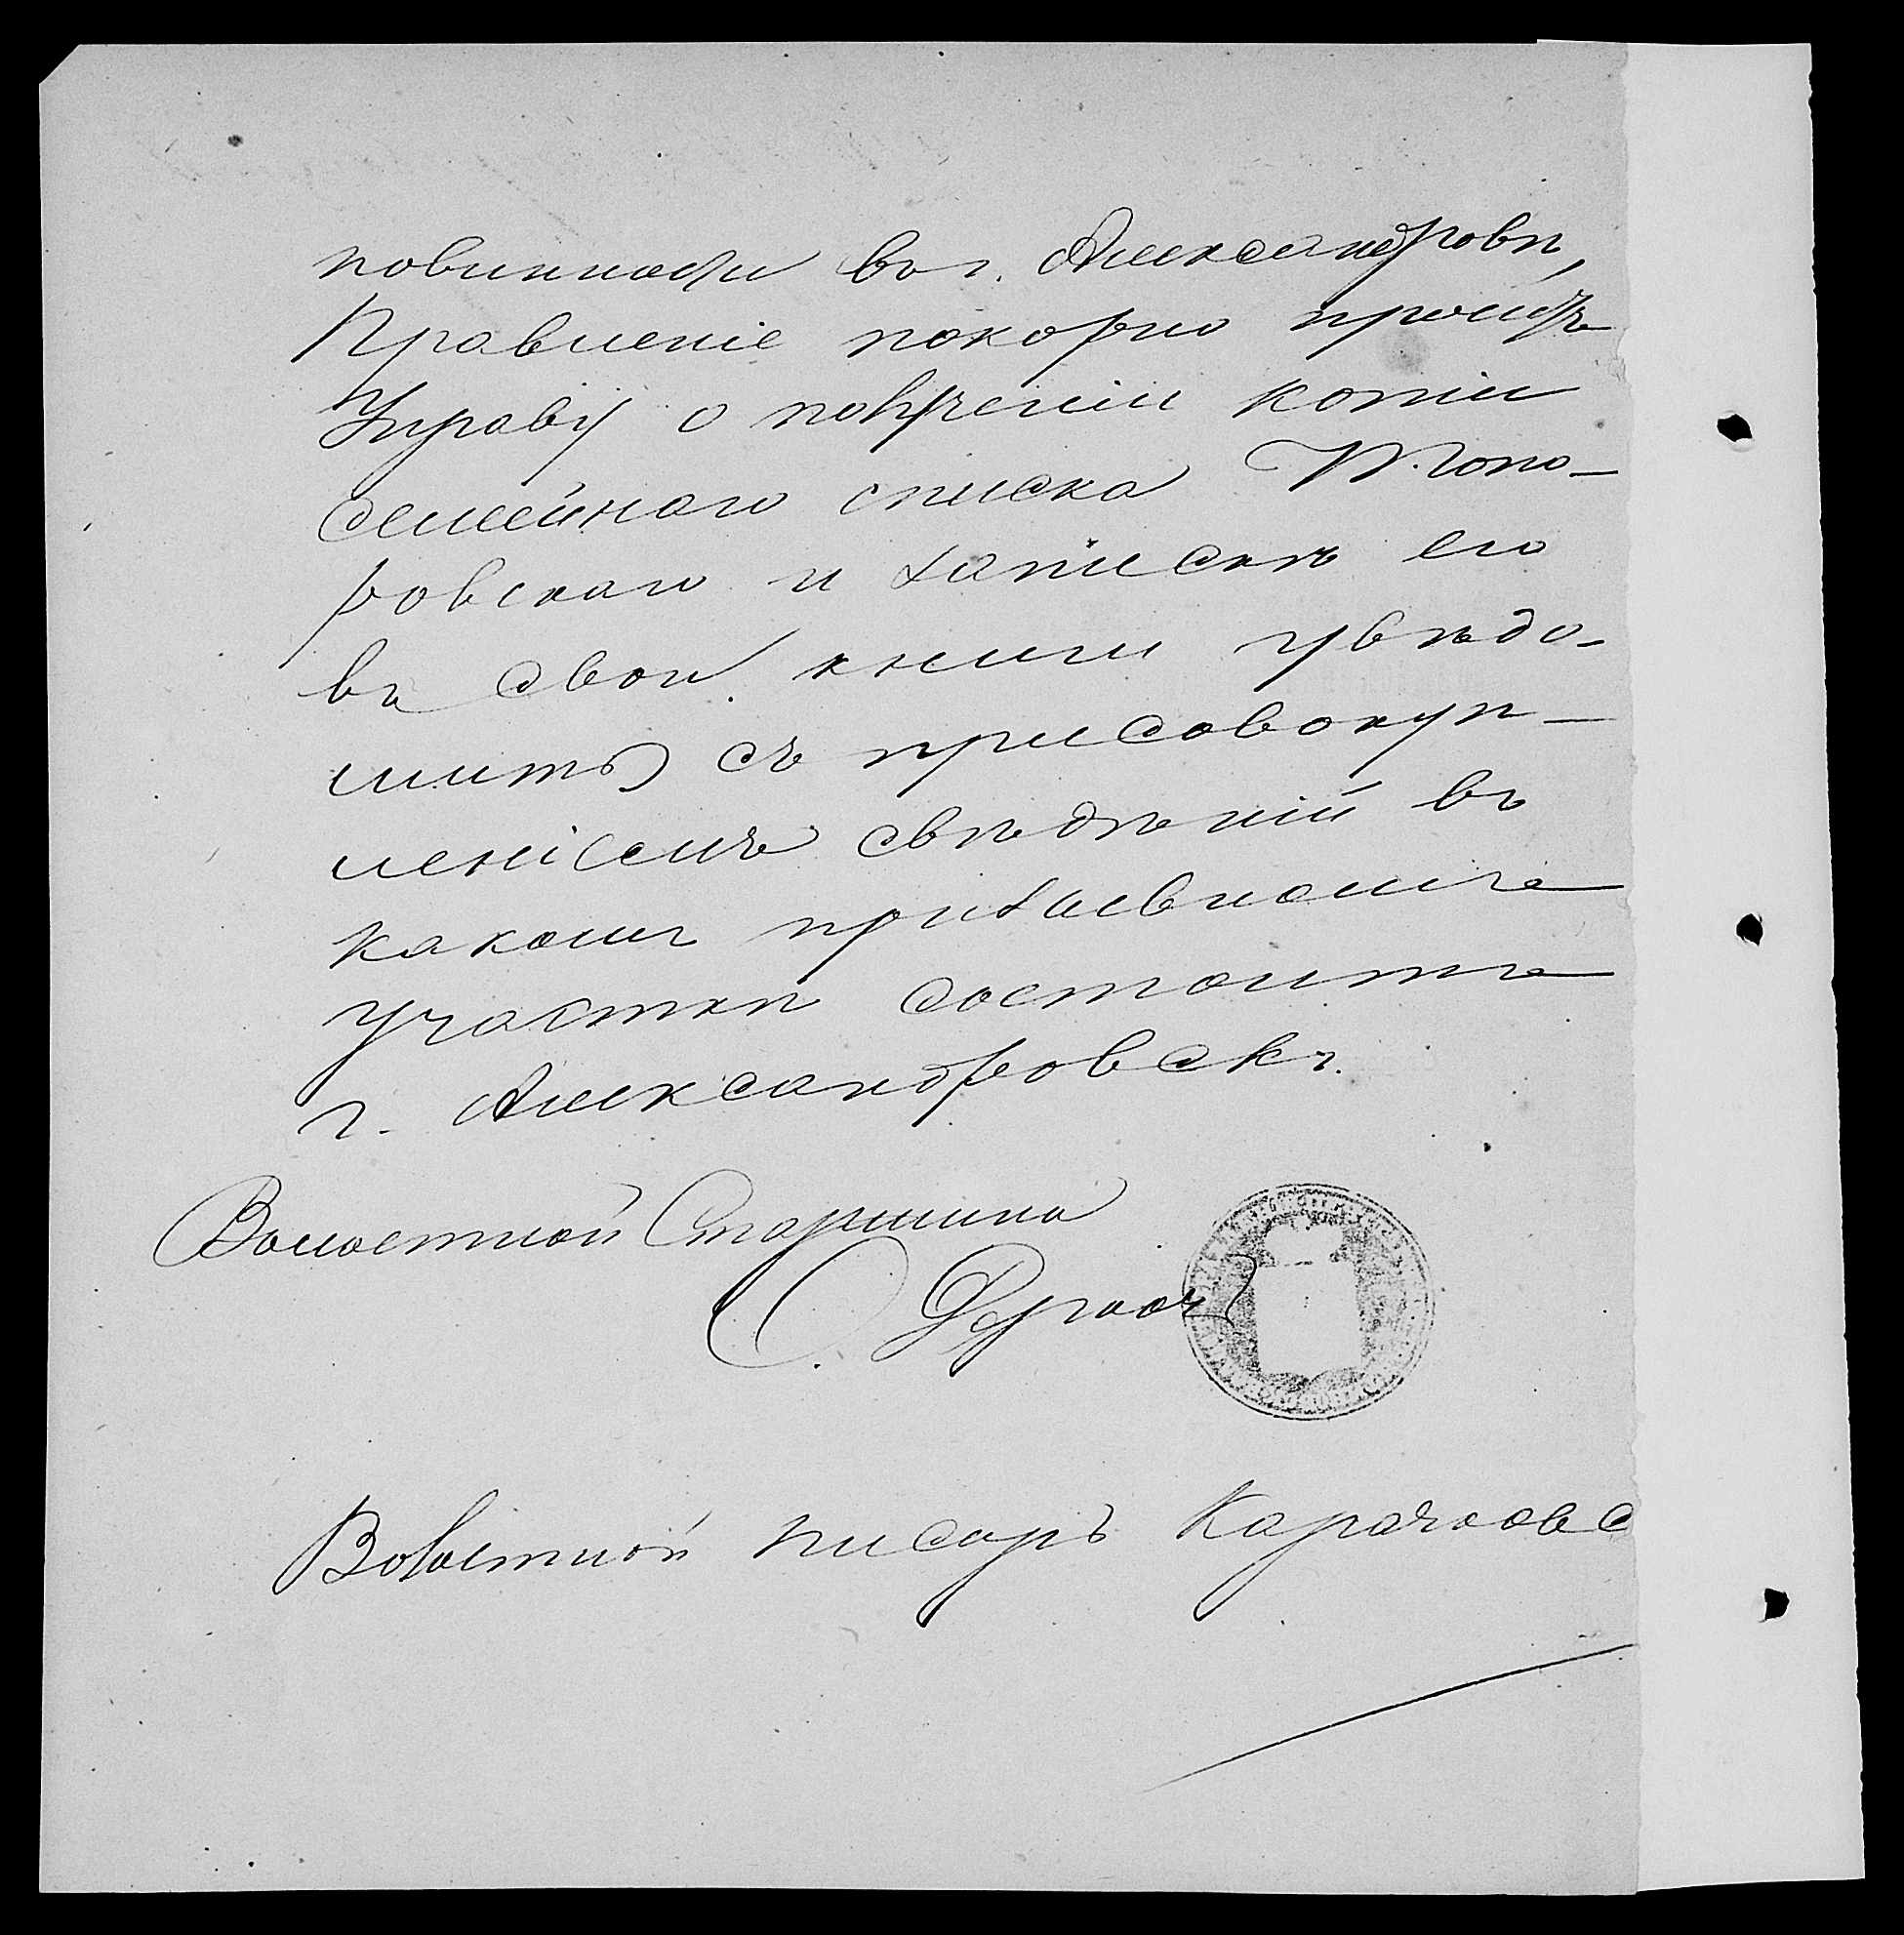 повинности въ г. Александровѣ,
Правленіе покорно проситъ
Управу о полученіи копіи
семейнаго списка Топо-
ровскаго и запискѣ его
въ свои книги увѣдо-
мить съ присовокуп-
леніемъ свѣдѣній въ
какомъ призывномъ
участкѣ состоитъ
г. Александровскъ.
Волостной Старшина
Волостной писарь Карачковс